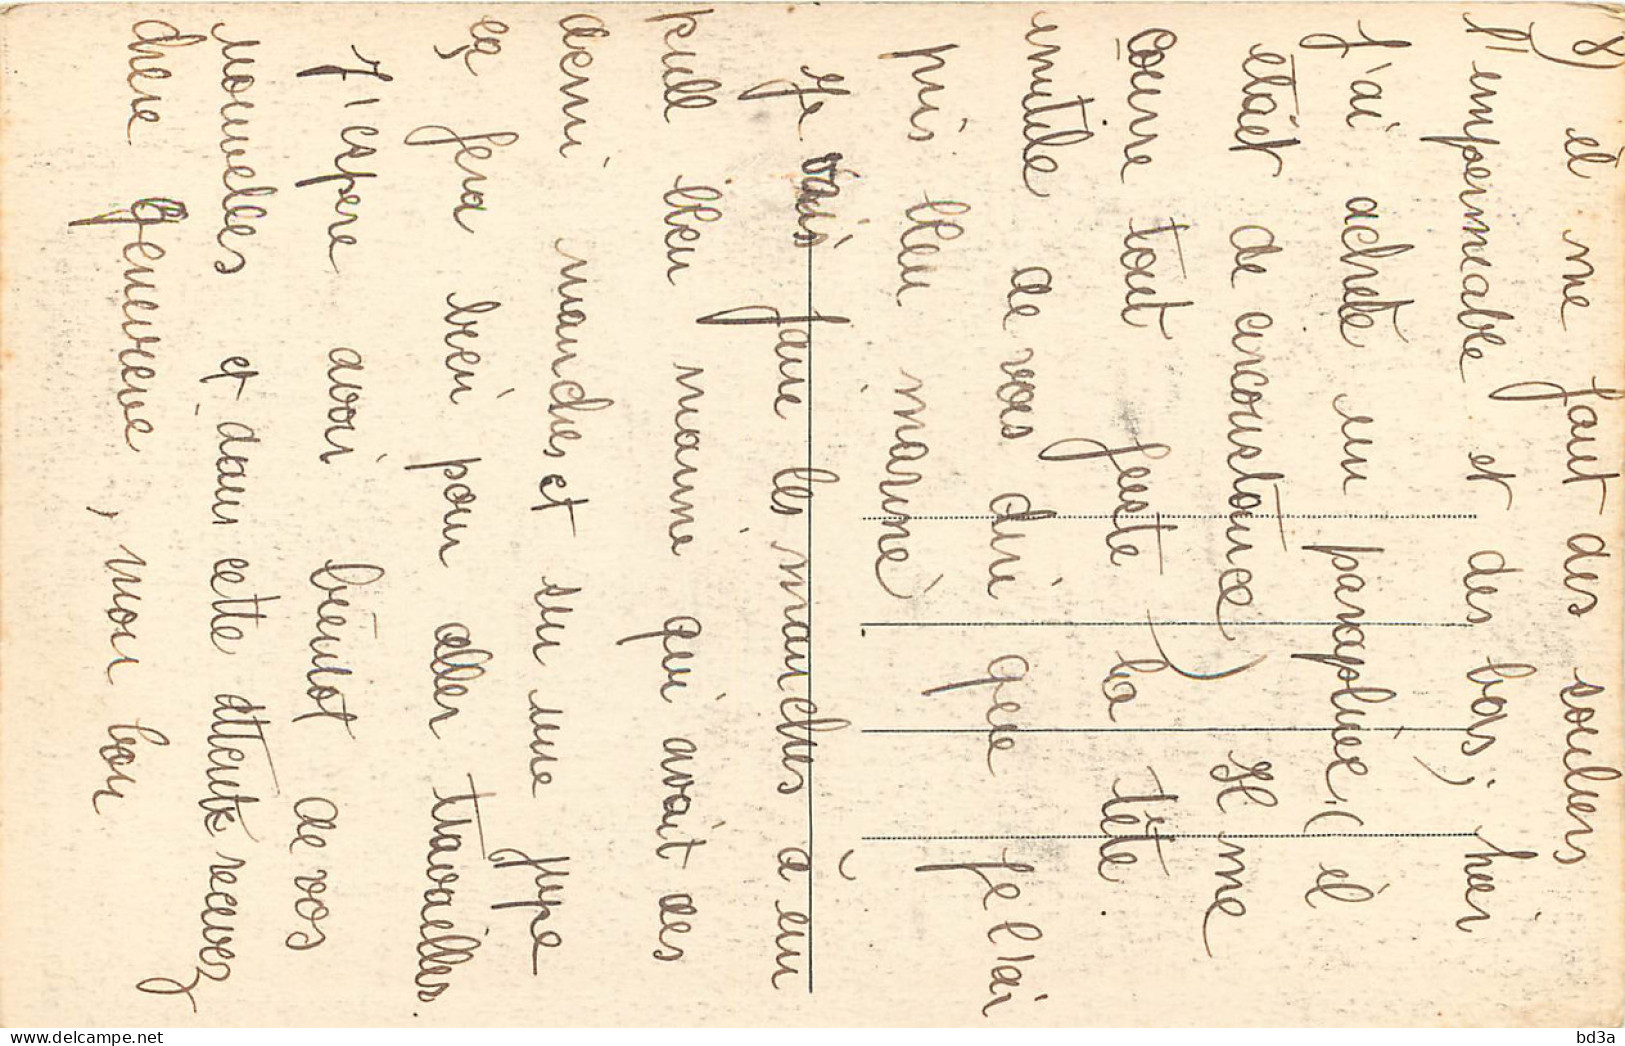 8) il me faut des souliers
l'impermeable et des bas; hier
j'ai acheté un parapluie (il
était de circonstance) Il me
couvre tout juste la tête
inutile de vous dire que je l'ai
pris bleu marine
Je vais faire les manches à un
pull bleu marine qui avait des
demi manches et sur une jupe
ça fera bien pour aller travailler.
J'espere avoir bientot de vos
nouvelles et dans cette attente recevez
chere genevieve, mon bon
bd3a